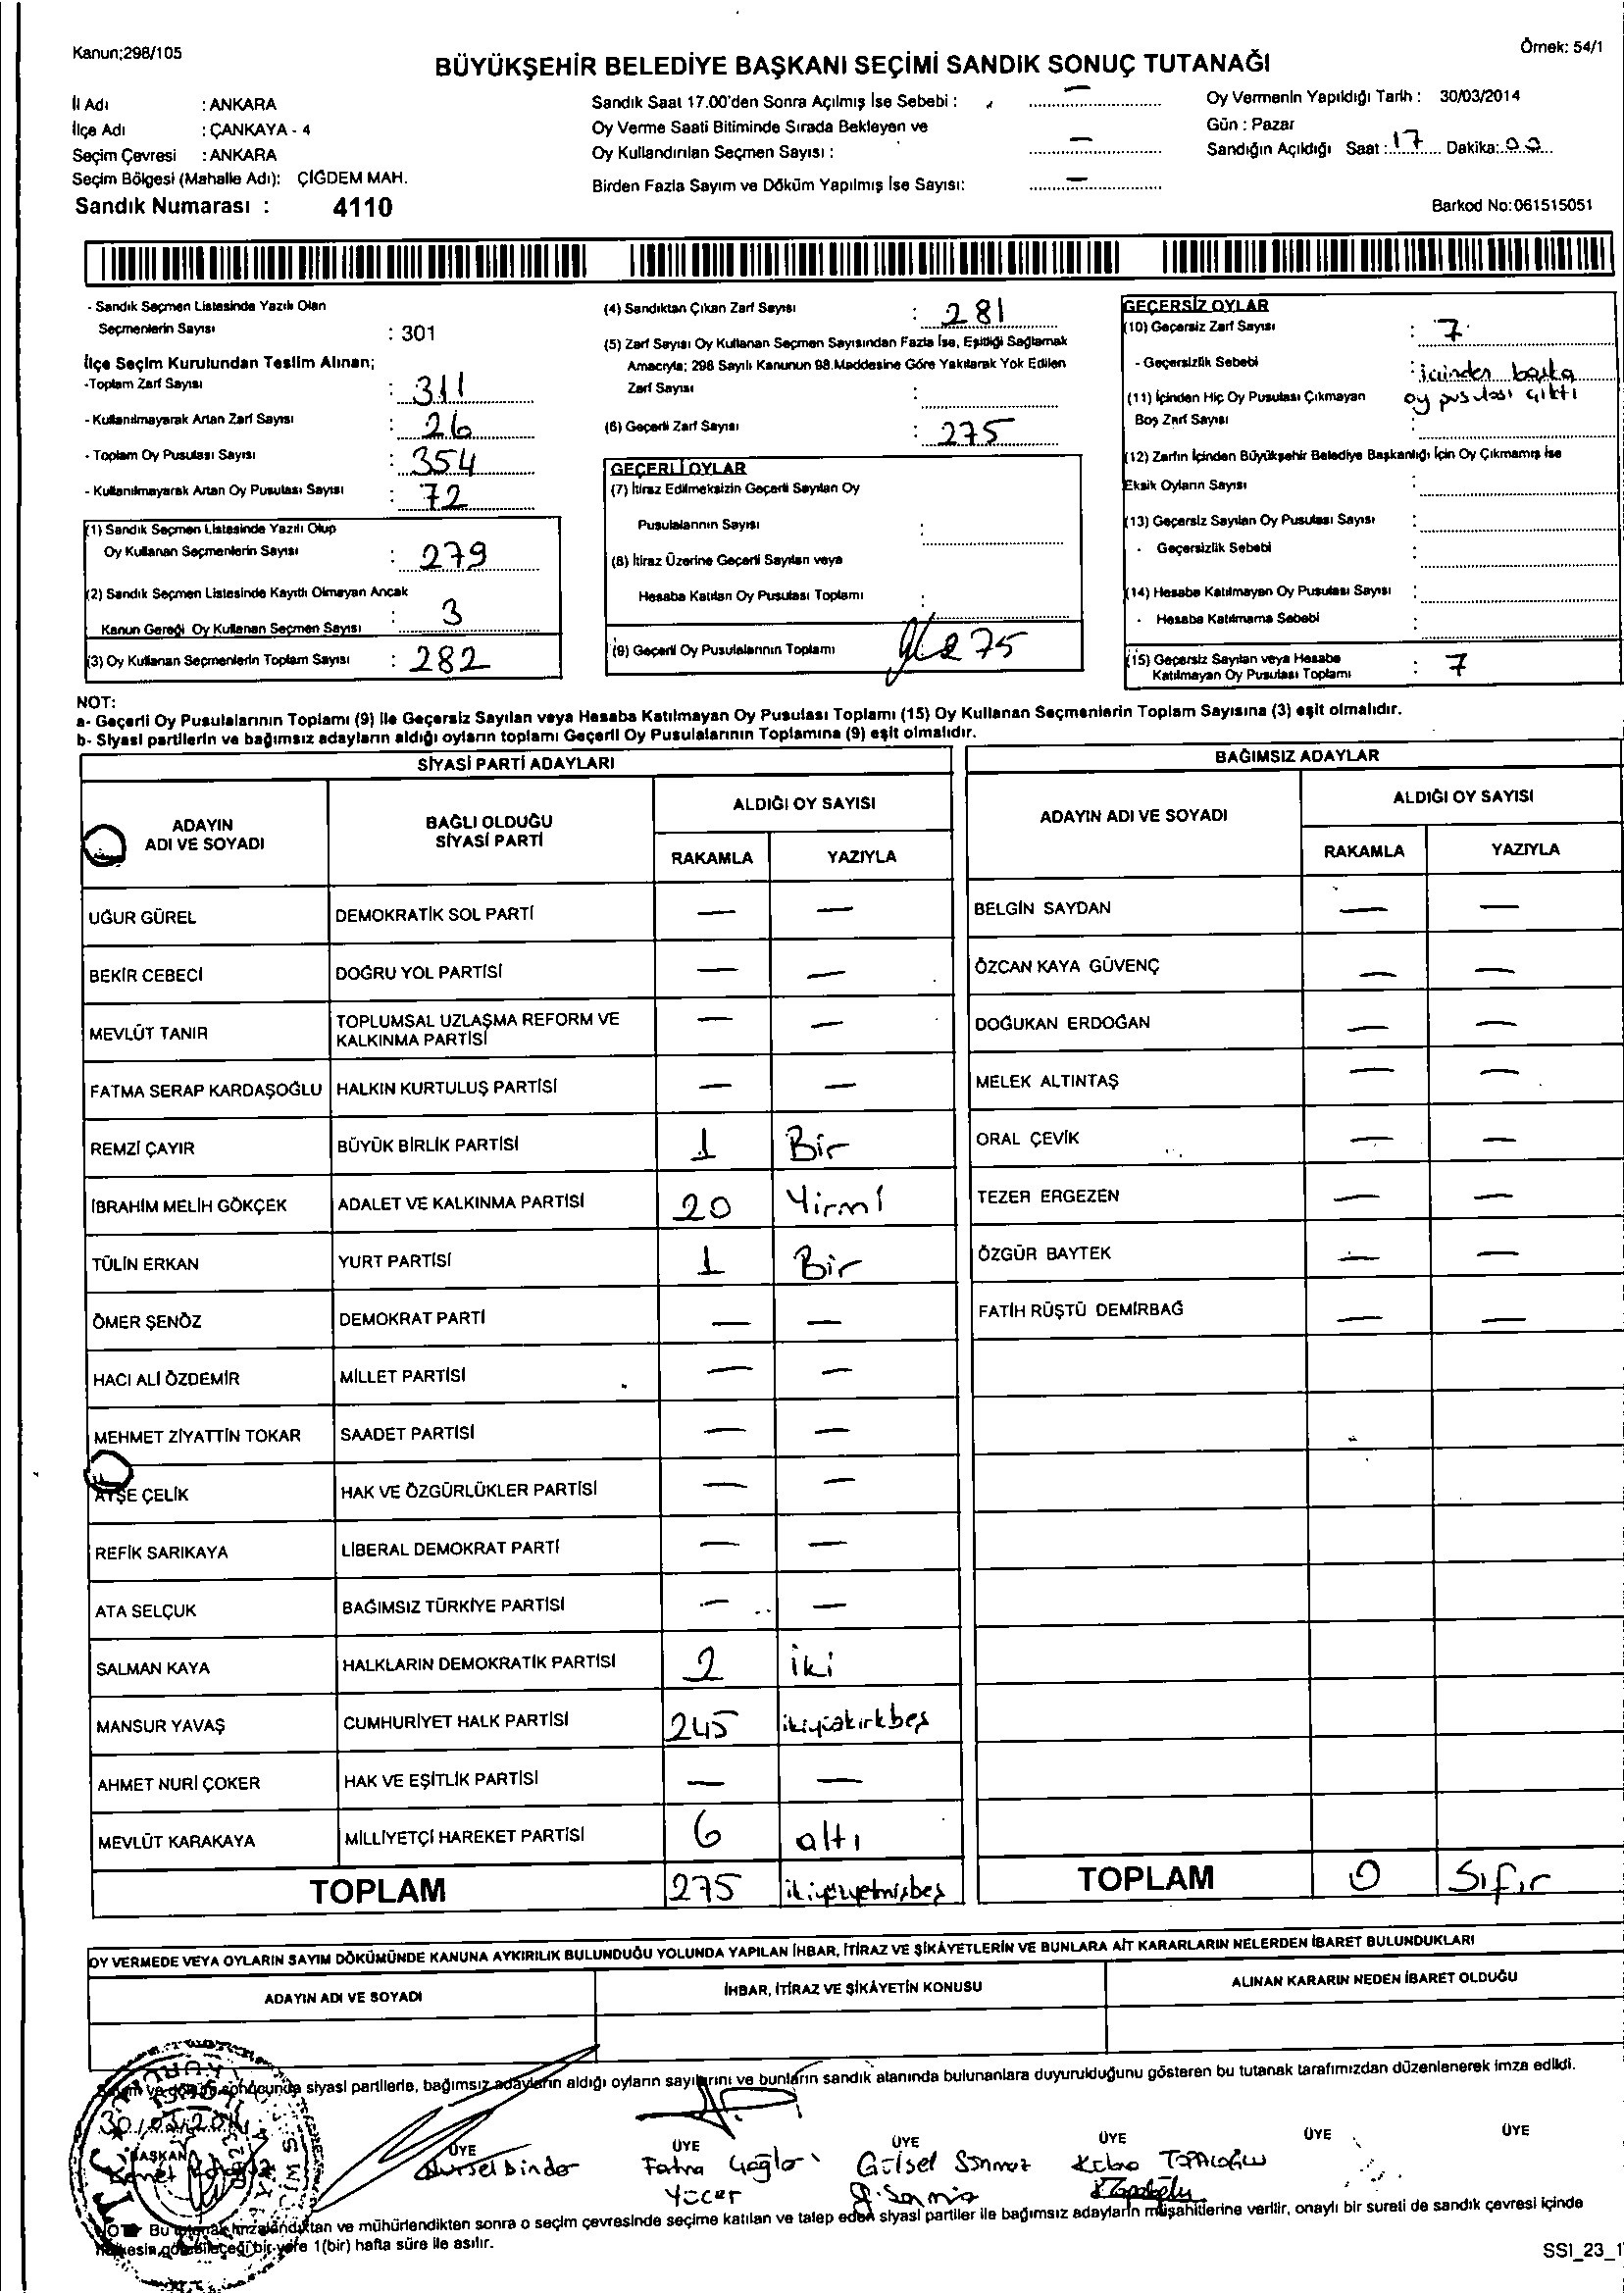 Kanun;298/105
Örnek: 54/1
BÜYÜKŞEHİR BELEDİYE BAŞKANI SEÇİMİ SANDIK SONUÇ TUTANAĞI
İl Adı : ANKARA
İlçe Adı : ÇANKAYA - 4
Seçim Çevresi : ANKARA
Seçim Bölgesi (Mahalle Adı): ÇİĞDEM MAH.
Sandık Numarası : 4110
Sandık Saat 17.00'den Sonra Açılmış İse Sebebi : —
Oy Verme Saati Bitiminde Sırada Bekleyen ve
Oy Kullandırılan Seçmen Sayısı : —
Birden Fazla Sayım ve Döküm Yapılmış İse Sayısı: —
Oy Vermenin Yapıldığı Tarih : 30/03/2014
Gün : Pazar
Sandığın Açıldığı Saat : 17 Dakika: 00
Barkod No:061515051
- Sandık Seçmen Listesinde Yazılı Olan
Seçmenlerin Sayısı : 301
İlçe Seçim Kurulundan Teslim Alınan;
-Toplam Zarf Sayısı : 311
- Kullanılmayarak Artan Zarf Sayısı : 26
- Toplam Oy Pusulası Sayısı : 354
- Kullanılmayarak Artan Oy Pusulası Sayısı : 72
(1) Sandık Seçmen Listesinde Yazılı Olup
Oy Kullanan Seçmenlerin Sayısı : 279
(2) Sandık Seçmen Listesinde Kayıtlı Olmayan Ancak
Kanun Gereği Oy Kullanan Seçmen Sayısı : 3
(3) Oy Kullanan Seçmenlerin Toplam Sayısı : 282
(4) Sandıktan Çıkan Zarf Sayısı : 281
(5) Zarf Sayısı Oy Kullanan Seçmen Sayısından Fazla İse, Eşitliği Sağlamak
Amacıyla; 298 Sayılı Kanunun 98.Maddesine Göre Yakılarak Yok Edilen
Zarf Sayısı :
(6) Geçerli Zarf Sayısı : 275
GEÇERLİ OYLAR
(7) İtiraz Edilmeksizin Geçerli Sayılan Oy
Pusulalarının Sayısı :
(8) İtiraz Üzerine Geçerli Sayılan veya
Hesaba Katılan Oy Pusulası Toplamı :
(9) Geçerli Oy Pusulalarının Toplamı 275
GEÇERSİZ OYLAR
(10) Geçersiz Zarf Sayısı : 7
- Geçersizlik Sebebi : içinden başka
oy pusulası çıktı
(11) İçinden Hiç Oy Pusulası Çıkmayan
Boş Zarf Sayısı :
(12) Zarfın İçinden Büyükşehir Belediye Başkanlığı İçin Oy Çıkmamış İse
Eksik Oyların Sayısı :
(13) Geçersiz Sayılan Oy Pusulası Sayısı :
- Geçersizlik Sebebi :
(14) Hesaba Katılmayan Oy Pusulası Sayısı :
- Hesaba Katılmama Sebebi :
(15) Geçersiz Sayılan veya Hesaba
Katılmayan Oy Pusulası Toplamı : 7
NOT:
a- Geçerli Oy Pusulalarının Toplamı (9) ile Geçersiz Sayılan veya Hesaba Katılmayan Oy Pusulası Toplamı (15) Oy Kullanan Seçmenlerin Toplam Sayısına (3) eşit olmalıdır.
b- Siyasi partilerin ve bağımsız adayların aldığı oyların toplamı Geçerli Oy Pusulalarının Toplamına (9) eşit olmalıdır.
SİYASİ PARTİ ADAYLARI
ADAYIN
ADI VE SOYADI
BAĞLI OLDUĞU
SİYASİ PARTİ
ALDIĞI OY SAYISI
RAKAMLA YAZIYLA
UĞUR GÜREL DEMOKRATİK SOL PARTİ — —
BEKİR CEBECİ DOĞRU YOL PARTİSİ — —
MEVLÜT TANIR TOPLUMSAL UZLAŞMA REFORM VE
KALKINMA PARTİSİ — —
FATMA SERAP KARDAŞOĞLU HALKIN KURTULUŞ PARTİSİ — —
REMZİ ÇAYIR BÜYÜK BİRLİK PARTİSİ 1 Bir
İBRAHİM MELİH GÖKÇEK ADALET VE KALKINMA PARTİSİ 20 Yirmi
TÜLİN ERKAN YURT PARTİSİ 1 Bir
ÖMER ŞENÖZ DEMOKRAT PARTİ — —
HACI ALİ ÖZDEMİR MİLLET PARTİSİ — —
MEHMET ZİYATTİN TOKAR SAADET PARTİSİ — —
AYŞE ÇELİK HAK VE ÖZGÜRLÜKLER PARTİSİ — —
REFİK SARIKAYA LİBERAL DEMOKRAT PARTİ — —
ATA SELÇUK BAĞIMSIZ TÜRKİYE PARTİSİ — —
SALMAN KAYA HALKLARIN DEMOKRATİK PARTİSİ 2 iki
MANSUR YAVAŞ CUMHURİYET HALK PARTİSİ 245 ikiyüzkırkbeş
AHMET NURİ ÇOKER HAK VE EŞİTLİK PARTİSİ — —
MEVLÜT KARAKAYA MİLLİYETÇİ HAREKET PARTİSİ 6 altı
TOPLAM 275 ikiyüzyetmişbeş
BAĞIMSIZ ADAYLAR
ADAYIN ADI VE SOYADI
ALDIĞI OY SAYISI
RAKAMLA YAZIYLA
BELGİN SAYDAN — —
ÖZCAN KAYA GÜVENÇ — —
DOĞUKAN ERDOĞAN — —
MELEK ALTINTAŞ — —
ORAL ÇEVİK — —
TEZER ERGEZEN — —
ÖZGÜR BAYTEK — —
FATİH RÜŞTÜ DEMİRBAĞ — —
TOPLAM 0 Sıfır
OY VERMEDE VEYA OYLARIN SAYIM DÖKÜMÜNDE KANUNA AYKIRILIK BULUNDUĞU YOLUNDA YAPILAN İHBAR, İTİRAZ VE ŞİKÂYETLERİN VE BUNLARA AİT KARARLARIN NELERDEN İBARET BULUNDUKLARI
ADAYIN ADI VE SOYADI
İHBAR, İTİRAZ VE ŞİKÂYETİN KONUSU
ALINAN KARARIN NEDEN İBARET OLDUĞU
Sayım ve döküm sonucunda siyasi partilerle, bağımsız adayların aldığı oyların sayılarını ve bunların sandık alanında bulunanlara duyurulduğunu gösteren bu tutanak tarafımızdan düzenlenerek imza edildi.
30/03/2014
BAŞKAN
ÜYE ÜYE ÜYE ÜYE ÜYE ÜYE
Nursel Binder Fatma Çağlar Gülsel Sönmez TOPALOĞLU
Yücer
NOT: Bu tutanak imzalandıktan ve mühürlendikten sonra o seçim çevresinde seçime katılan ve talep eden siyasi partiler ile bağımsız adayların müşahitlerine verilir, onaylı bir sureti de sandık çevresi içinde
herkesin görebileceği bir yere 1(bir) hafta süre ile asılır.
SSI_23_1